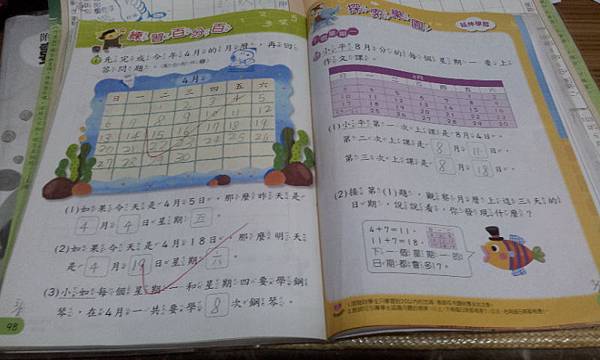 練習百分百
先完成今年4月的月曆,再回
答問題。
4月
日 一 二 三 四 五 六
1 2 3 4 5
6 7 8 9 10 11 12
13 14 15 16 17 18 19
20 21 22 23 24 25 26
27 28 29 30
(1)如果今天是4月5日,那麼昨天是
4月4日星期五。
(2)如果今天是4月18日,那麼明天
是4月19日星期六。
(3)小如每個星期一和星期四要學鋼
琴,在4月一共要學8次鋼琴。
98
探索樂園
延伸學習
小平8月分的每個星期一要上
作文課。
8月
日 一 二 三 四 五 六
(1)小平第一次上課是8月4日。
第二次上課是8月11日。
第三次上課是8月18日。
(2)接第(1)題,觀察月曆上這三天的
日期,說說看,你發現什麼?
4+7=11,
11+7=18,
下一個星期一的
日期都會多7。